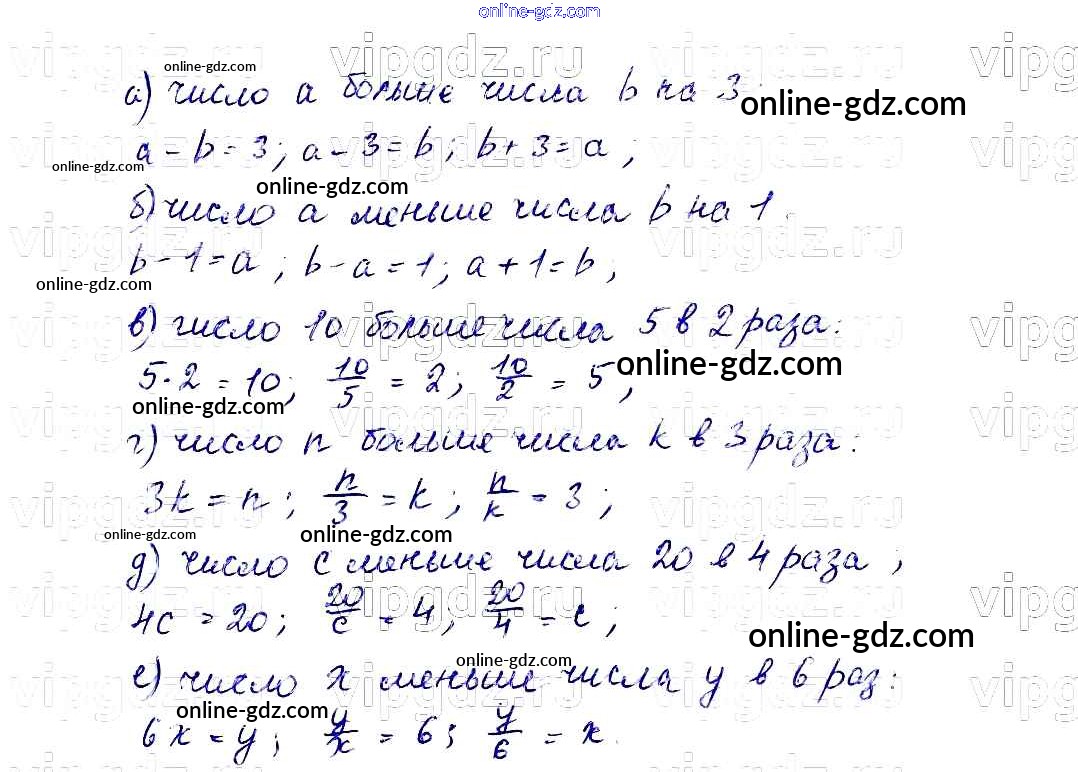 online-gdz.com
vipgdz.ru vipgdz.ru vipg
online-gdz.com
а) число a больше числа b на 3
online-gdz.com
a - b = 3; a - 3 = b; b + 3 = a;
online-gdz.com
online-gdz.com
б) число a меньше числа b на 1.
vipgdz.ru vipgdz.ru vipg
b - 1 = a; b - a = 1; a + 1 = b;
online-gdz.com
в) число 10 больше числа 5 в 2 раза:
online-gdz.com
5 · 2 = 10; 10/5 = 2; 10/2 = 5;
online-gdz.com
г) число n больше числа k в 3 раза:
3k = n; n/3 = k; n/k = 3;
vipgdz.ru vipgdz.ru vipg
online-gdz.com
online-gdz.com
д) число c меньше числа 20 в 4 раза;
4c = 20; 20/c = 4; 20/4 = c;
online-gdz.com
online-gdz.com
е) число x меньше числа y в 6 раз:
online-gdz.com
6x = y; y/x = 6; y/6 = x.